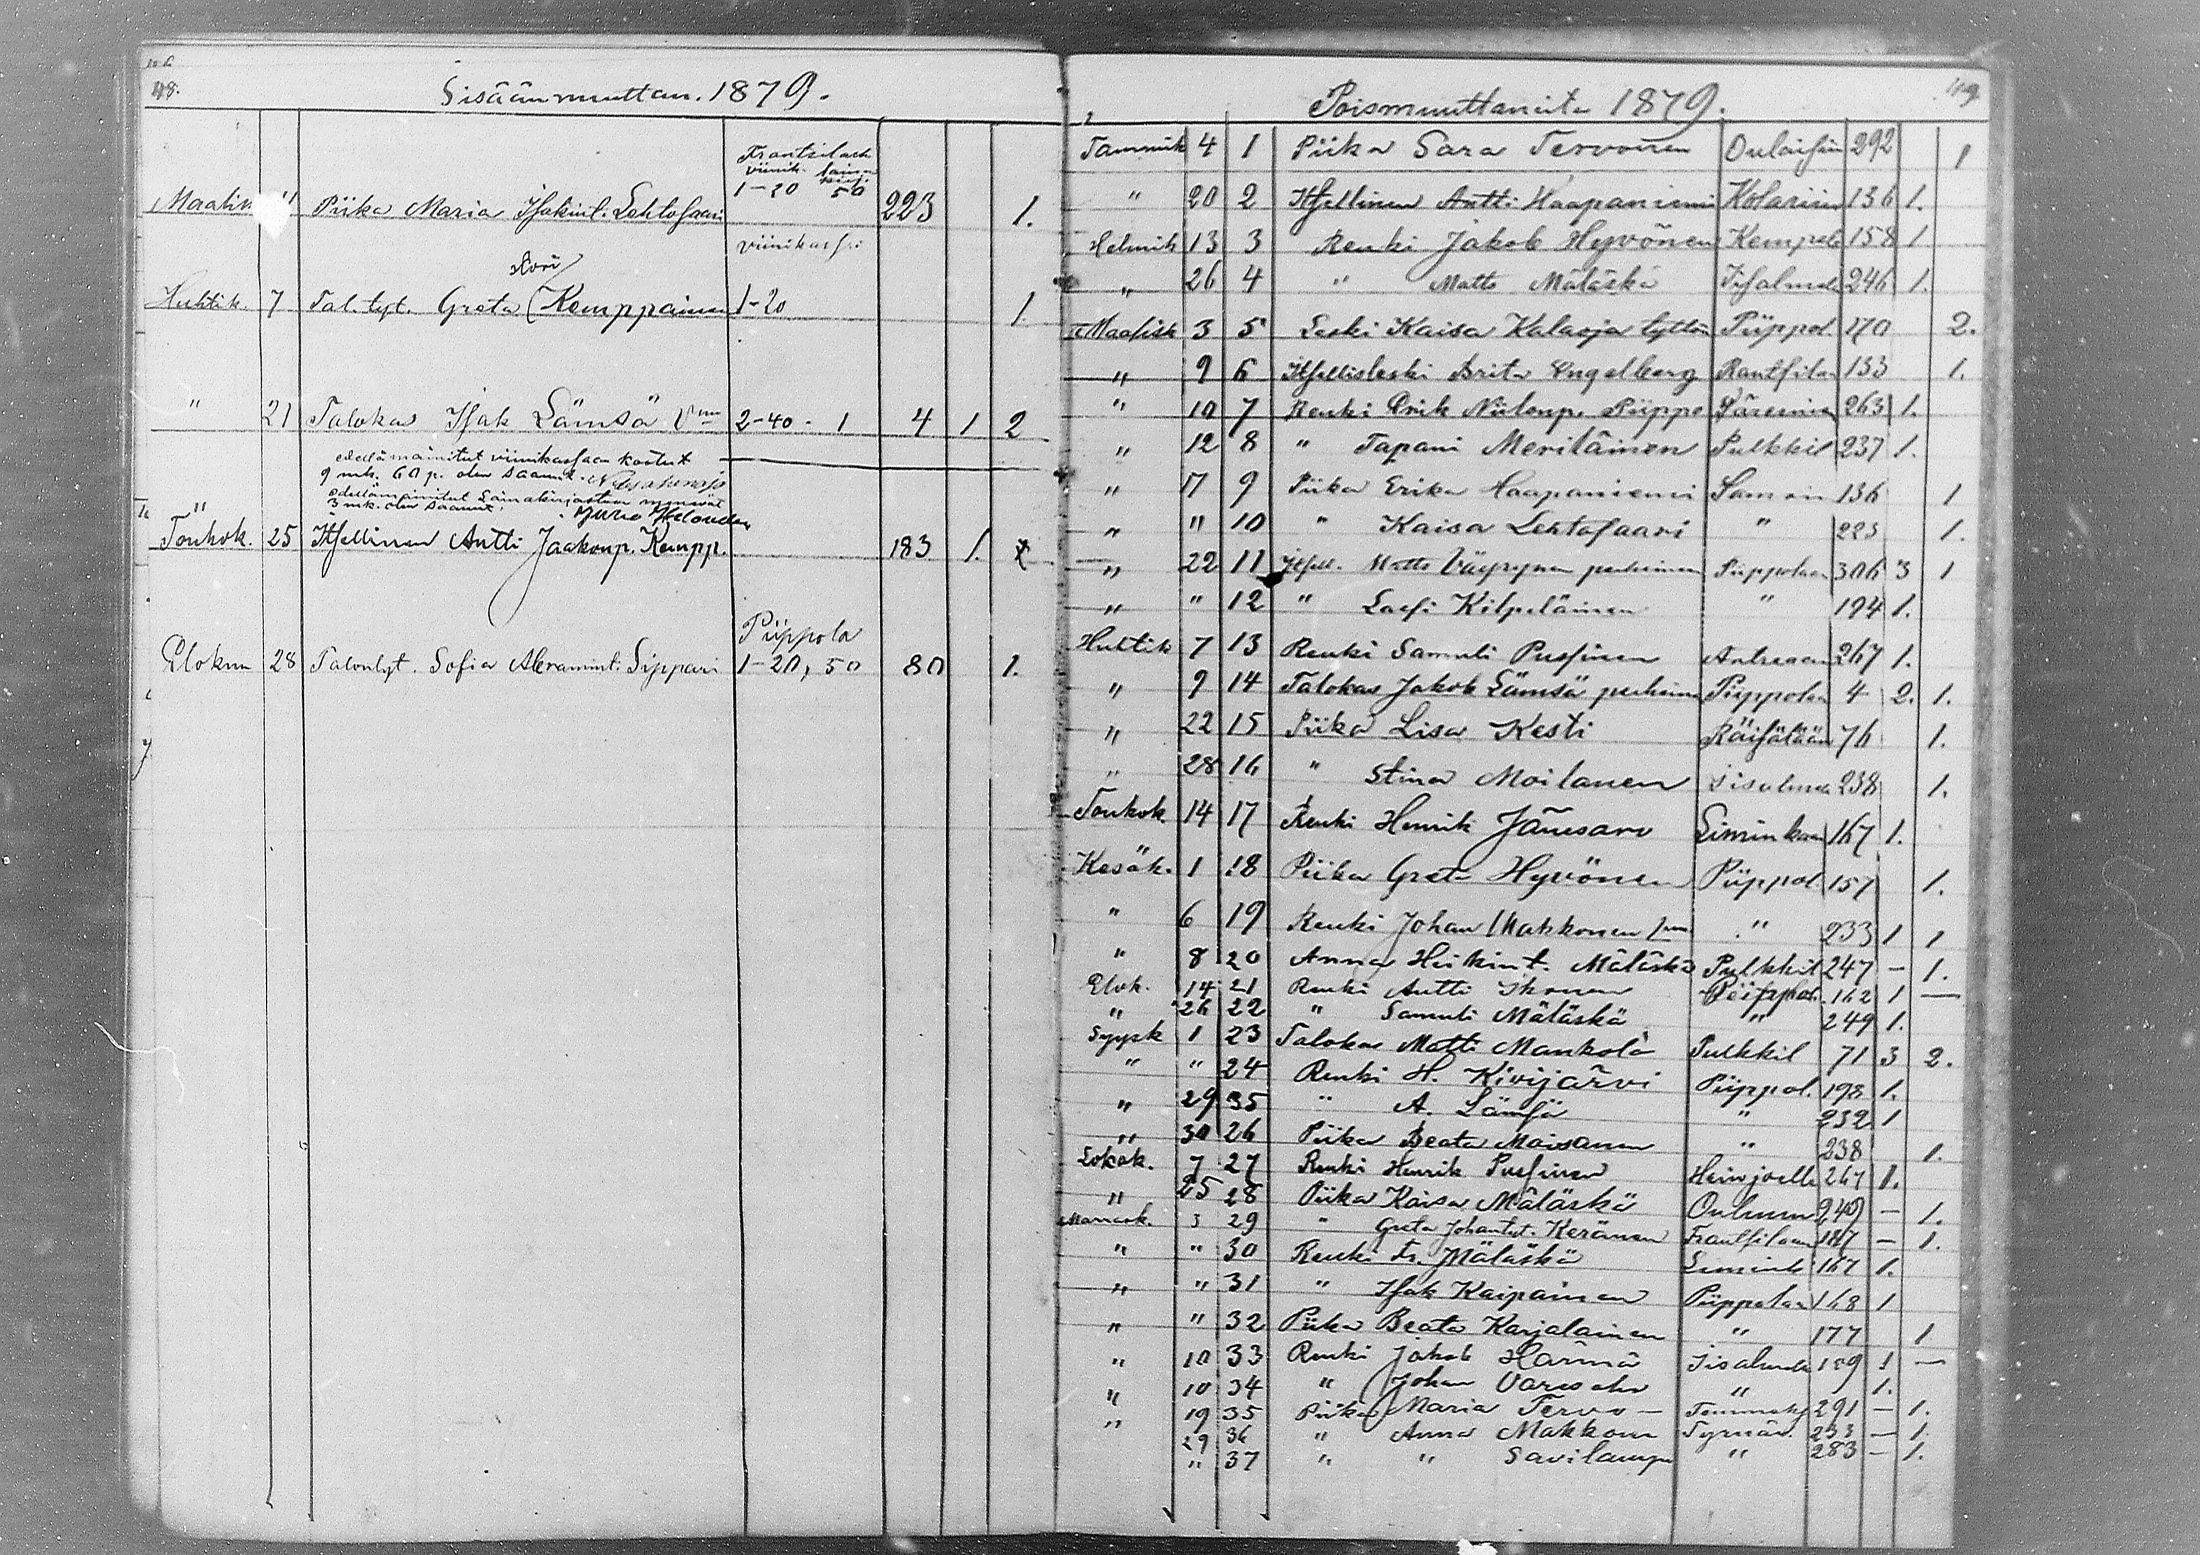 48.
Sisäänmuuttan. 1879.
Frantsilasta
viinik. laina
kirj.
1-20 50
Maalisk. 11 Piika Maria Isakint. Lehtosaari 223 1.
viinikassa
Huhtik. 7 Tal. tyt. Greta Kemppainen 1-20 1
" 21 Talokas Isak Lämsä Vmo 2-40 - 1 4 1 2
edellämainitut viinikassan kostut
9 mk. 60 p. olen saanut.
edellämainitut Lainakirjaston menevät
3 mk. olen saanut.
Toukok. 25 Itsellinen Antti Jaakonp. Kempp. 183 1.
Piippola
Elokuu 28 Talontyt. Sofia Abramint. Sippari 1-20, 50 80 1.
49
Poismuuttaneita 1879.
Tammik 4 1 Piika Sara Tervonen Oulaisiin 292 1
" 20 2 Itsellinen Antti Haapaniemi Kolariin 136 1.
Helmik 13 3 Renki Jakob Hyvönen Kempele 158 1
" 26 4 " Matts Mäläskä Iisalmele 246 1.
Maalisk 3 5 Leski Kaisa Kalaoja tyttö Piippol. 170 2.
" 9 6 Itsellisleski Brita Engelberg Rantsilan 133 1.
" 10 7 Renki Erik Niilonp. Piippo Säresniem 263 1.
" 12 8 " Tapani Meriläinen Pulkkil 237 1.
" 17 9 Piika Erika Haapaniemi Samoin 136 1
" " 10 " Kaisa Lehtosaari " 223 1.
" 22 11 Itsell. Matts Väyrynen perheinen Piippolaan 306 3 1
" " 12 " Lassi Kilpeläinen " 194 1.
Huhtik 7 13 Renki Samuli Pussinen Antreaan 267 1.
" 9 14 Talokas Jakob Lämsä perheine Piippolan 4 2. 1.
" 22 15 Piika Lisa Kesti Räisälään 76 1.
" 28 16 " Stina Moilanen Iisalmele 238 1.
Toukok. 14 17 Renki Henrik Jänesaro Liminkaan 167 1.
Kesäk. 1 18 Piika Greta Hyvönen Piippol. 157 1.
" 6 19 Renki Johan Makkonen " 233 1 1
" 8 20 Anna Heikint. Mäläskä Pulkkil 247 - 1.
Elok. 14 21 Renki Antti Ikonen Piippol. 162 1 —
" 26 22 " Samuli Mäläskä " 249 1.
Syysk 1 23 Talokas Matti Mankola Pulkkil 71 3 2.
" " 24 Renki H. Kivijärvi Piippol. 198 1.
" 29 35 " A. Lämsä " 232 1
" 30 26 Piika Beata Moisanen " 238 1.
Lokak. 7 27 Renki Henrik Pussinen Heinjoelle 267 1.
" 25 28 Piika Kaisa Mäläskä Ouluun 249 - 1.
Marrask. 3 29 " Greta Johantyt. Keränen Frantsilaan 187 - 1.
" " 30 Renki Fr. Mäläskä Limink 167 1.
" " 31 " Isak Kaipainen Piippolan 168 1
" " 32 Piika Beata Karjalainen " 177 1
" 10 33 Renki Jakob Härmä Iisalmele 159 1 —
" 10 34 " Johan Varesaho " " 1.
" 19 35 Piika Maria Tervo — Temmeks 291 - 1.
29 36 " Anna Makkone Tyrnäv. 233 - 1.
" 37 " " Savilamp " 283 - 1.